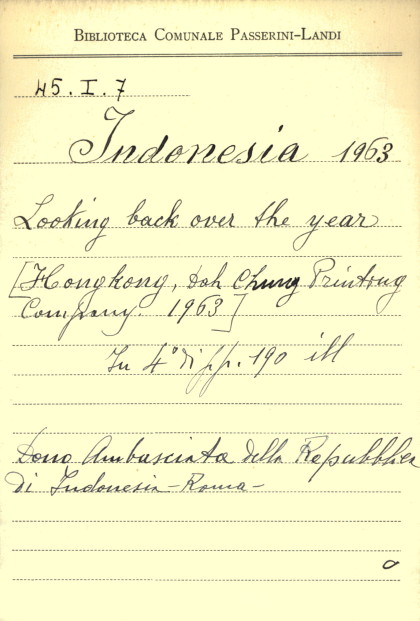 BIBLIOTECA COMUNALE PASSERINI-LANDI
45.I.7
Indonesia 1963
Looking back over the year
[Hongkong, Dah Chung Printong
Company. 1963]
In 4° di pp. 190 ill
Dono Ambasciata della Repubblica
di Indonesia - Roma -